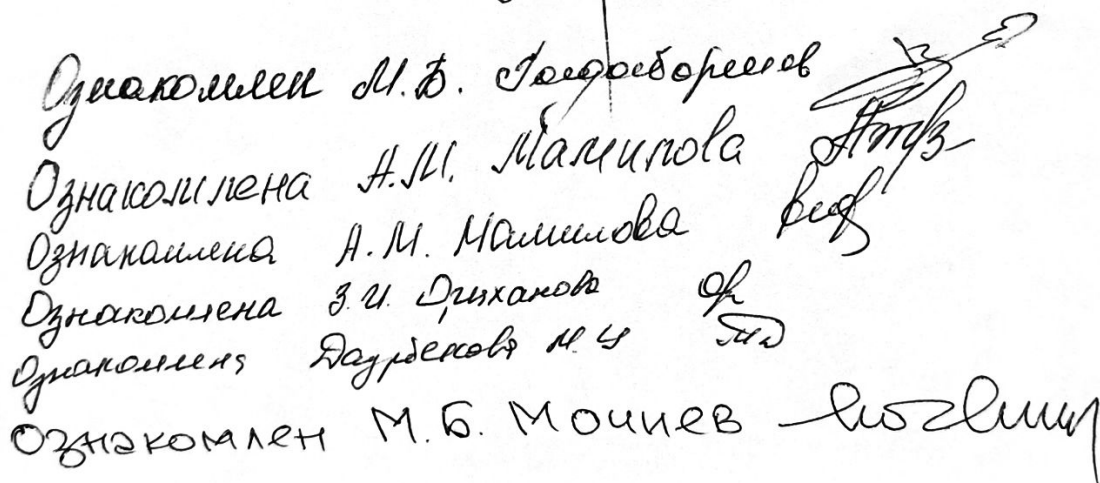 Ознакомлен М.Б. Голдоборшев
Ознакомлена А.М. Мамилова
Ознакомлена А.М. Мамилова
Ознакомлена З.И.
Ознакомлена Даурбекова М.И
Ознакомлен М.Б. Мочиев